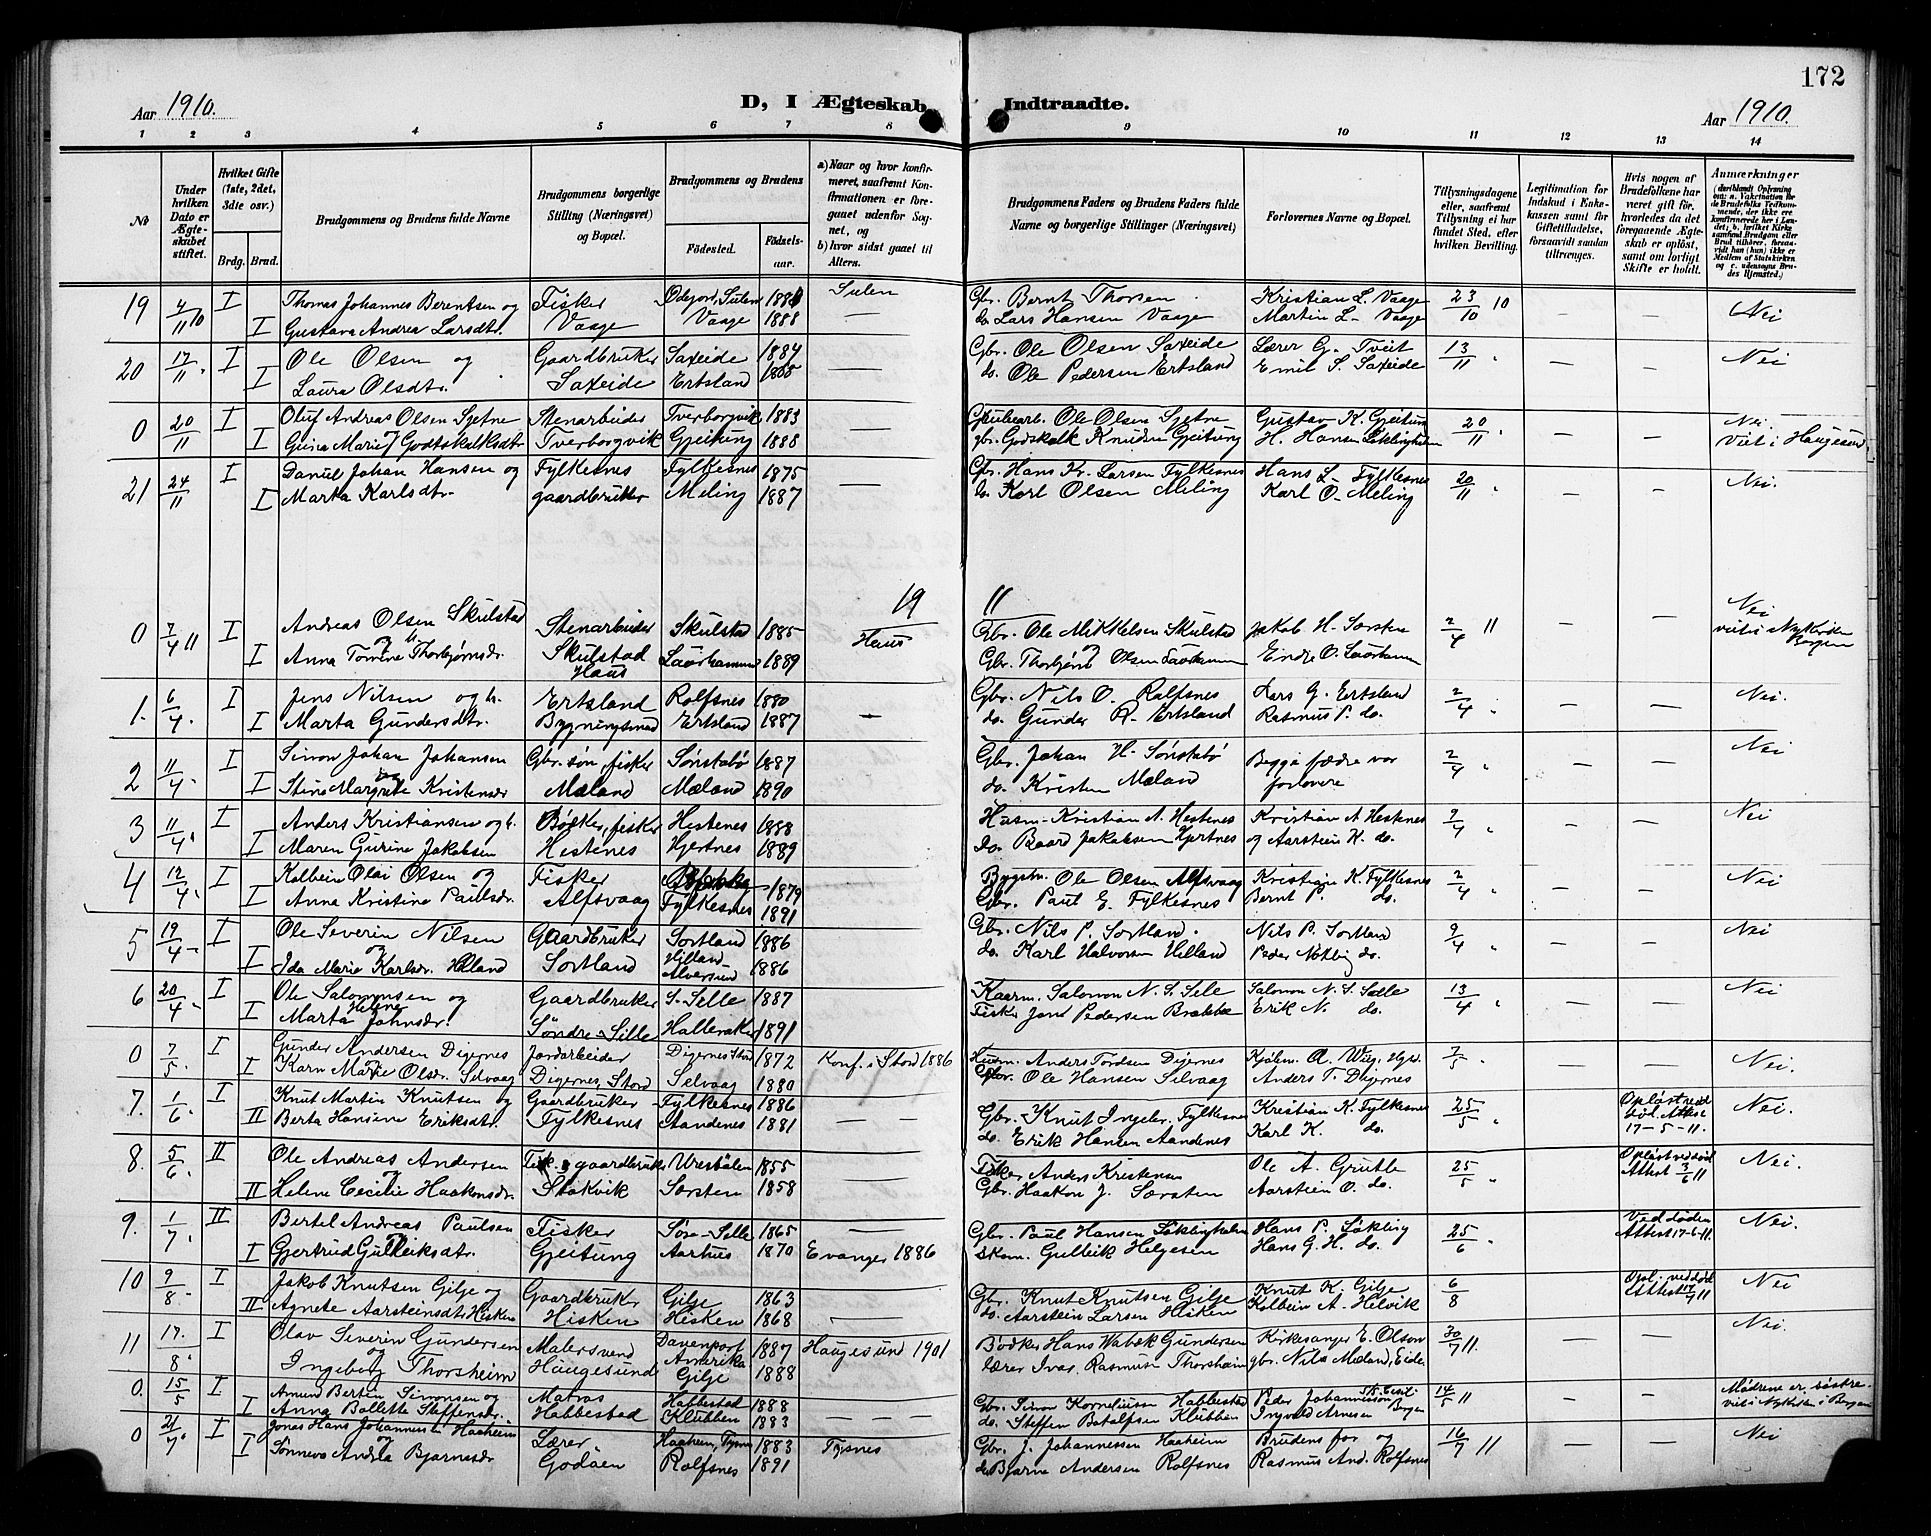 172
Aar 1910.
D, I Ægteskab Indtraadte.
Aar 1910.
1 2 3 4 5 6 7 8 9 10 11 12 13 14
No
Under hvilken Dato er Ægteskabet stiftet.
Hvilket Gifte (1ste, 2det, 3die osv.)
Brdg. Brud.
Brudgommens og Brudens fulde Navne
Brudgommens borgerlige Stilling (Næringsvei) og Bopæl.
Brudgommens og Brudens
Fødested. Fødselsaar.
a) Naar og hvor konfirmeret, saafremt Konfirmationen er foregaaet udenfor Sognet, og
b) hvor sidst gaaet til Alters.
Brudgommens Faders og Brudens Faders fulde Navne og borgerlige Stillinger (Næringsvei)
Forlovernes Navne og Bopæl.
Tillysningsdagene eller, saafremt Tillysning ei har fundet Sted, efter hvilken Bevilling.
Legitimation for Indskud i Enkekassen samt for Giftetilladelse, forsaavidt saadan tiltrænges.
Hvis nogen af Brudefolkene har været gift før, hvorledes da det foregaaende Ægteskab er opløst, samt om lovligt Skifte er holdt.
Anmærkninger
19 4/11 10 I Thomas Johannes Berentsen og Fisker Sulen 188 Sulen Gbr. Bernt Thorsen Kristian L. Vaage 23/10 10 Nei
I Gustava Andrea Larsdtr. Vaage Vaage 1888 — do. Lars Hansen Vaage Martin L. Vaage
20 17/11 I Ole Olsen og Gaardbruker Saxeide 1884 — Gbr. Ole Olsen Saxeide Lærer G. Tveit 13/11 — — Nei
I Laura Olsdtr. Saxeide Ertsland do. Ole Pedersen Ertsland Emil S. Saxeide
0 20/11 I Oluf Andreas Olsen Sjetne Stenarbeider Tverborgvik 1883 — Ole Olsen Sjetne Gustav K. Gjeitung 20/11 — — Nei.
I Gurina Marie Godtskalksdtr. Tverborgvik Gjeitung 1888 gbr. Godskalk Knudsen Gjeitung H. Hansen Søklingholm Viet i Haugesund
21 24/11 I Daniel Johan Hansen og Fylkesnes Fylkesnes 1875 — Gbr. Hans Kr. Larsen Fylkesnes Hans L. Fylkesnes 20/11 — — Nei.
I Marta Karlsdtr. gaardbruker Meling 1887 do. Karl Olsen Meling Karl O. Meling
19 11
0 7/4 11 I Andreas Olsen Skulstad Stenarbeider Skulstad 1885 Haus Gbr. Ole Mikkelsen Skulstad Jakob H. Sørsten 2/4 11 — — Nei
I og Anna Tomine Thorbjørnsdr. Skulstad Haus 1889 og Gbr. Thorbjørn Olsen Endre O. viet i Nykirken Bergen
1. 6/4. I Jens Nilsen og h. Ertsland Rolfsnes 1880 — Gbr. Nils O. Rolfsnes Lars G. Ertsland 2/4 — — Nei
I Marta Gundersdtr. Bygningsmand Ertsland 1887 do. Gunder R. Ertsland Rasmus P. do.
2 11/4 I Simon Johan Johansen Gbr. søn, fisker Sønstabø 1887 Gbr. Johan H. Sønstabø Begge fædre var 2/4 — — Nei
I og Stina Margrete Kristensdr Mæland Mæland 1890 do. Kristen Mæland forlovere
3 11/4 I Anders Kristiansen og h. Bødker, fisker Hestenes 1888 Husm. Kristian A. Hestenes Kristian A Hestenes 9/4 — — Nei
I Maren Gurine Jakobsen Hestenes Hjertnes 1889 do. Baard Jakobsen Hjertnes og Aarstein K. do.
4 12/4 I Kolbein Olai Olsen og Fisker 1879 Bygsm. Ole Olsen Alfsvaag Kristian K. Fylkesnes 2/4 — — Nei
I Anna Kristine Paulsdr. Alfsvaag Fylkesnes 1891 Gbr. Paul E. Fylkesnes Bernt P. do.
5 19/4 I Ole Severin Nilsen Gaardbruker Sortland 1886 Gbr. Nils P. Sortland Nils P. Sortland 9/4 — — Nei
I og Ida Marie Karlsdr. Helland Sortland Hilland Alversund 1886 do. Karl Halvorsen Hilland Peder do.
6 20/4 I Ole Salomonsen og Gaardbruker S. Selle 1887 Kaarm. Salomon N. S. Sele Salomon N. S. Selle 13/4 — — Nei
I Marta Helene Johnsdr. Søndre Sille Halleraker 1891 Fisker Jon Pedersen Brakke Erik N. do.
0 7/5 I Gunder Andersen Digernes Jordarbeider Digernes Stord 1872 Konf. i Stord 1886 Husm. Anders Tordsen Digernes 7/5 — — Nei.
I Karn Marie Olsdr. Selvaag Digernes, Stord Selvaag 1880 Gbr. Ole Hansen Selvaag Anders T. Digernes
7. 1/6 I Knut Martin Knutsen og Gaardbruker Fylkesnes 1886 — Gbr. Knut Ingebr. Fylkesnes Kristian K. Fylkesnes 25/5 Opløst ved død. Attest 17-5-11. Nei.
II Berta Hansine Eriksdtr. Fylkesnes Aandenes 1881 do. Erik Hansen Aandenes Karl K. do.
8. 5/6. II Ole Andreas Andersen Fisk. og gaardbruker 1855 — Fisker Anders Kristensen Ole A. Grutle 25/5 Opløst ved død Attest 3/6 11 Nei.
II og Helene Cecilie Haakonsdr. Stokvik Sørsten 1858 Gbr. Haakon J. Sørsten Aarstein O. do.
9. 1/7. II Bertel Andreas Paulsen Fisker Søre-Selle 1865 — Gbr. Paul Hansen Søklingholm Hans P. Søkling 25/6 Ved døden Attest 17-6-11. Nei.
I Gjertrud Gulleiksdtr. Gjeitung Aarhus 1870 Evanger 1886 Skom. Gulleik Helgesen Hans G. H. do.
10 9/8 I Jakob Knutsen Gilje og Gaardbruker Gilje 1863 — Gbr. Knut Knutsen Gilje Knut K. Gilje 6/8 Opl. ved død Attest 11 Nei
II Agnete Aarsteinsdtr Hisken Hisken Hisken 1868 do. Aarstein Larsen Hisken Kolbein A. Helvik
11 17/8 I Olav Severin Gundersen Malersvend Davenport Amerika 1887 Haugesund 1901 Bødker Hans Wabek Gundersen Kirkesanger E. Olson 30/7 11. — — Nei.
og Ingeborg Thorsheim Haugesund Gilje 1888 Lærer Ivar Rasmusen Thorsheim gbr. Nils Mæland, Eide
0. 15/5 I Amund Bertin Simonsen og Matros Habbestad 1888 — — — Gbr. Simon Korneliussen Habbestad Peder Johannesson Bergen 14/5 11 — — Mødrene er søstre.
I Anna Bollette Steffensdr. Habbestad Klubben 1883 do. Steffen Botolfsen Klubben Ingvald Arnesen viet i Nykirken i Bergen
0 21/7 I Jonas Hans Johannesen Haaheim Lærer Haaheim, Tysnes 1883 Tysnes Gbr. J. Johannessen Haaheim Brudens far og 16/7 11 — — Nei
I Sønneva Andrea Bjarnesdr Godøen Rolfsnes 1891 do Bjarne Andersen Rolfsnes Rasmus And. Rolfsnes